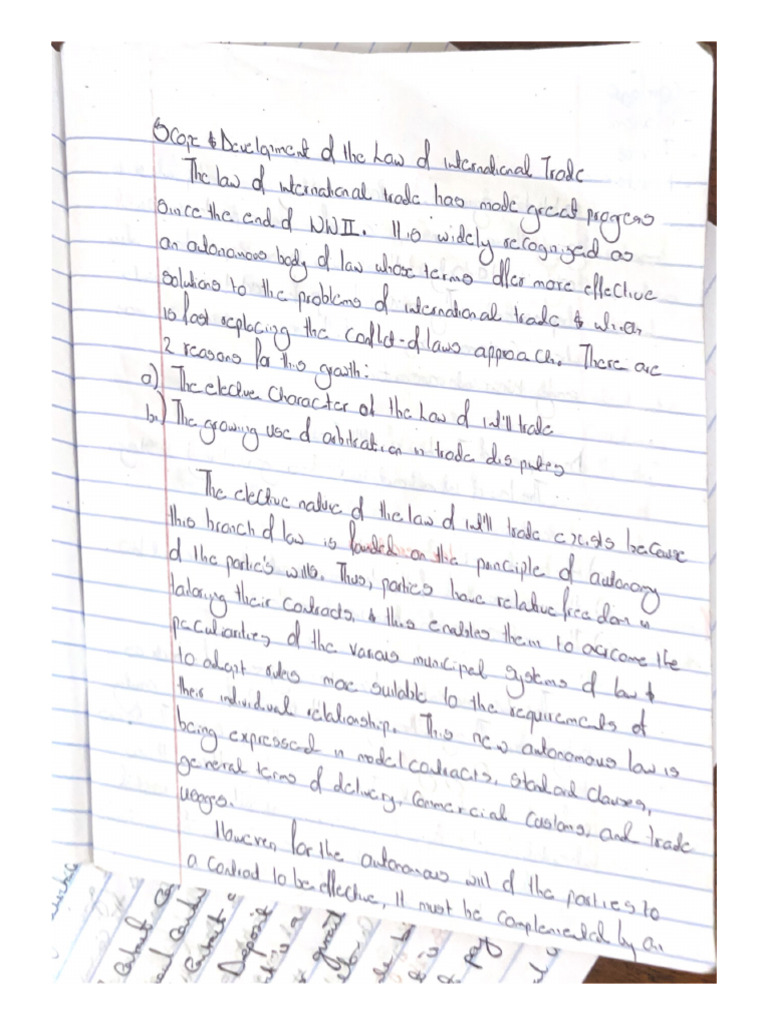 Scope & Development of the Law of international Trade
The law of international trade has made great progress
since the end of WWII. It is widely recognized as
an autonomous body of law whose terms offer more effective
solutions to the problems of international trade & which
is fast replacing the conflict-of laws approach. There are
2 reasons for this growth:
a) The elective Character of the Law of int'll trade
b.) The growing use of arbitration in trade disputes
The elective nature of the law of int'll trade exists because
this branch of law is founded on the principle of autonomy
of the partie's wills. Thus, parties have relative freedom in
tailoring their contracts, & this enables them to overcome the
peculiarities of the various municipal systems of law &
to adopt rules more suitable to the requirements of
their individual relationship. This new autonomous law is
being expressed in model contracts, standard clauses,
general terms of delivery, commercial customs, and trade
usages.
However, for the autonomous will of the parties to
a contract to be effective, it must be complemented by an
Contract
Deposit
pay